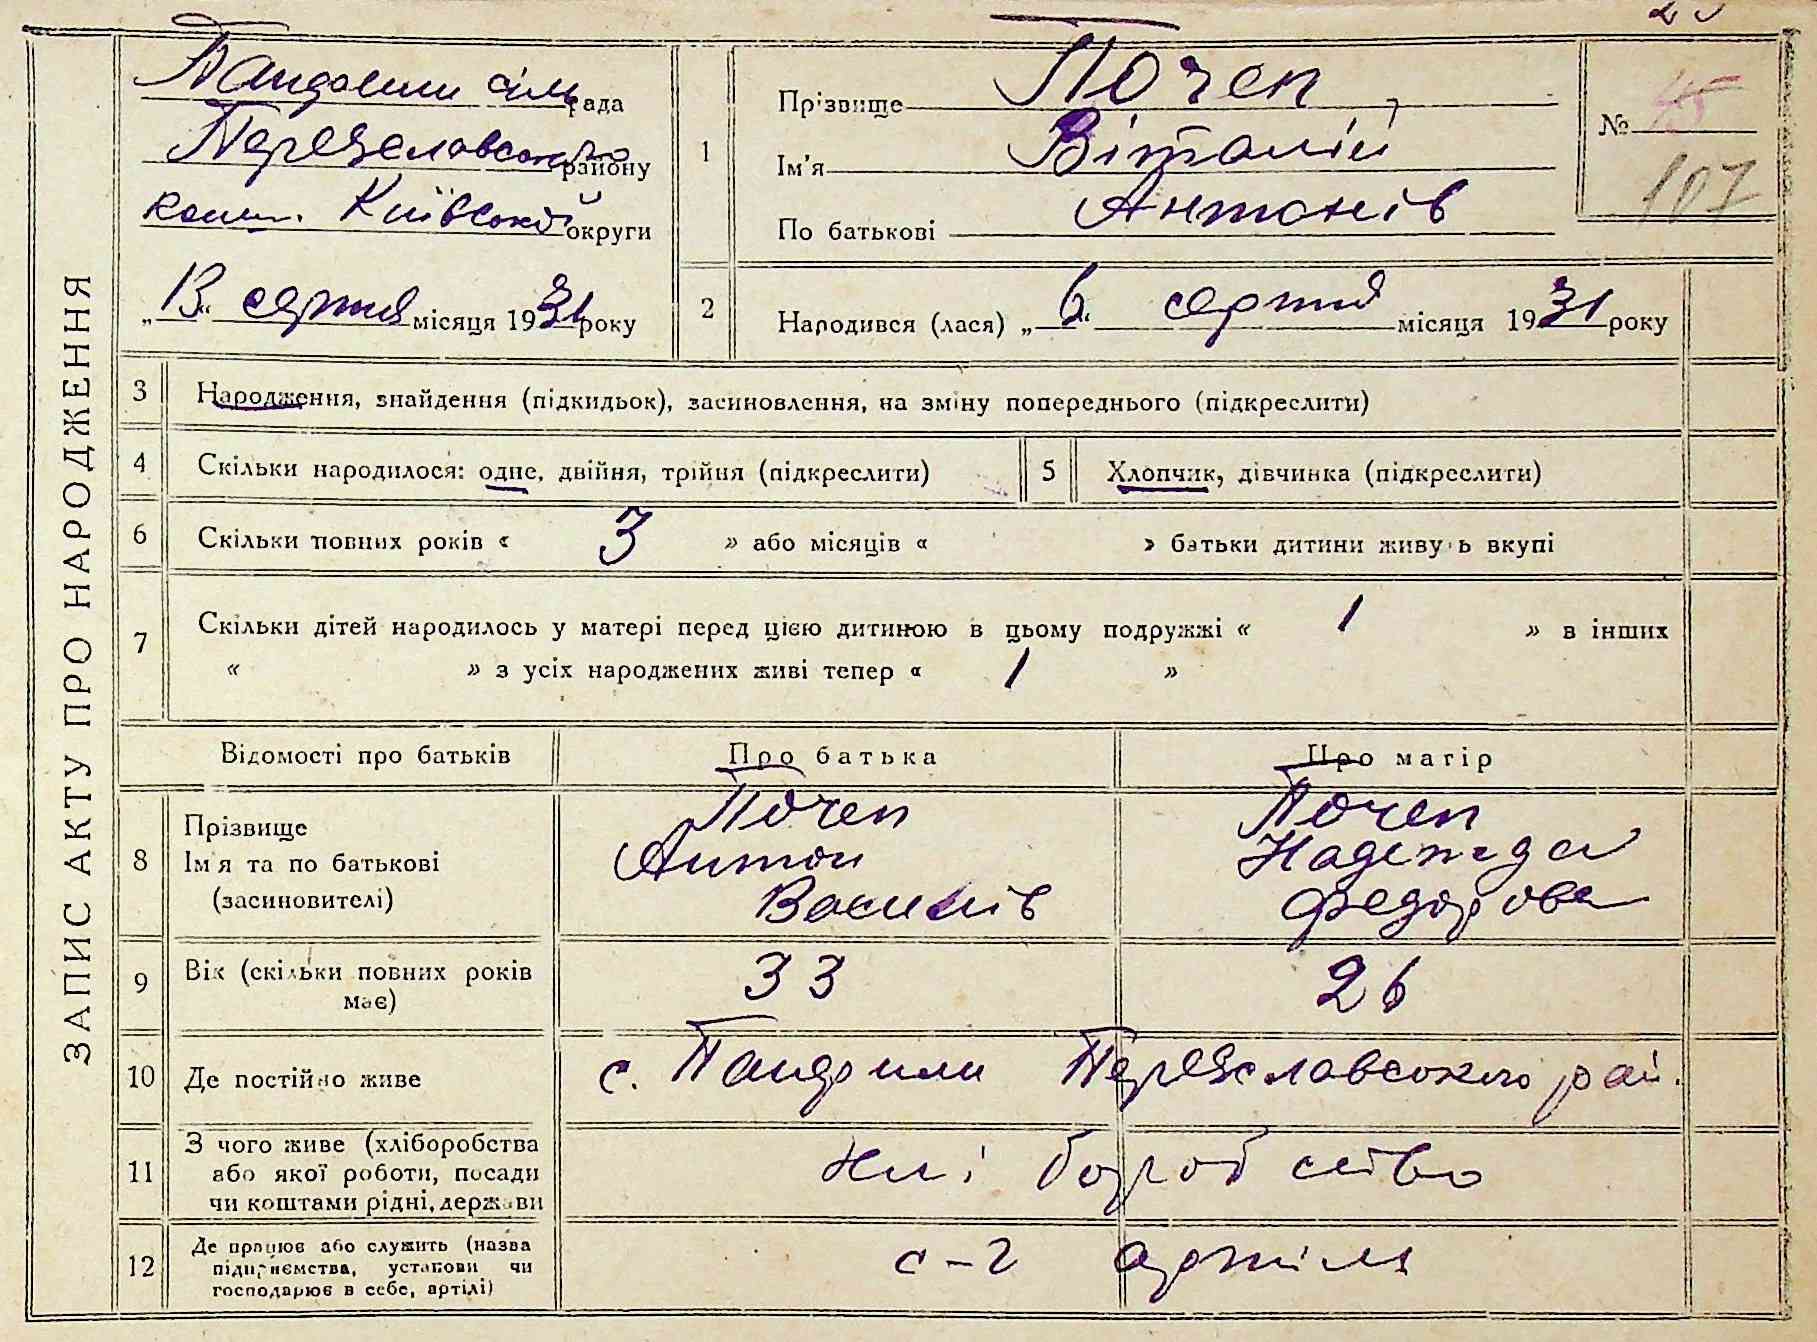 ЗАПИС АКТУ ПРО НАРОДЖЕННЯ
Пандоили сільрада
Переяславського району
колиш. Київської округи
„13“ серпня місяця 1931 року
1
Прізвище Почеп
Ім'я Віталій
По батькові Антонів
№ 45
107
2
Народився (лася) „6“ серпня місяця 1931 року
3 Народження, знайдення (підкидьок), засиновлення, на зміну попереднього (підкреслити)
4 Скільки народилося: одне, двійня, трійня (підкреслити)
5 Хлопчик, дівчинка (підкреслити)
6 Скільки повних років « 3 » або місяців « » батьки дитини живуть вкупі
7 Скільки дітей народилось у матері перед цією дитиною в цьому подружжі « 1 » в інших
« » з усіх народжених живі тепер « 1 »
Відомості про батьків Про батька Про матір
8 Прізвище
Ім'я та по батькові
(засиновителі)
Почеп
Антон
Василів
Почеп
Надежда
Федорова
9 Вік (скільки повних років
має)
33 26
10 Де постійно живе с. Пандоили Переяславського рай.
11 З чого живе (хліборобства
або якої роботи, посади
чи коштами рідні, держави
хліборобство
12 Де працює або служить (назва
підприємства, установи чи
господарює в себе, артілі)
с-г артіль